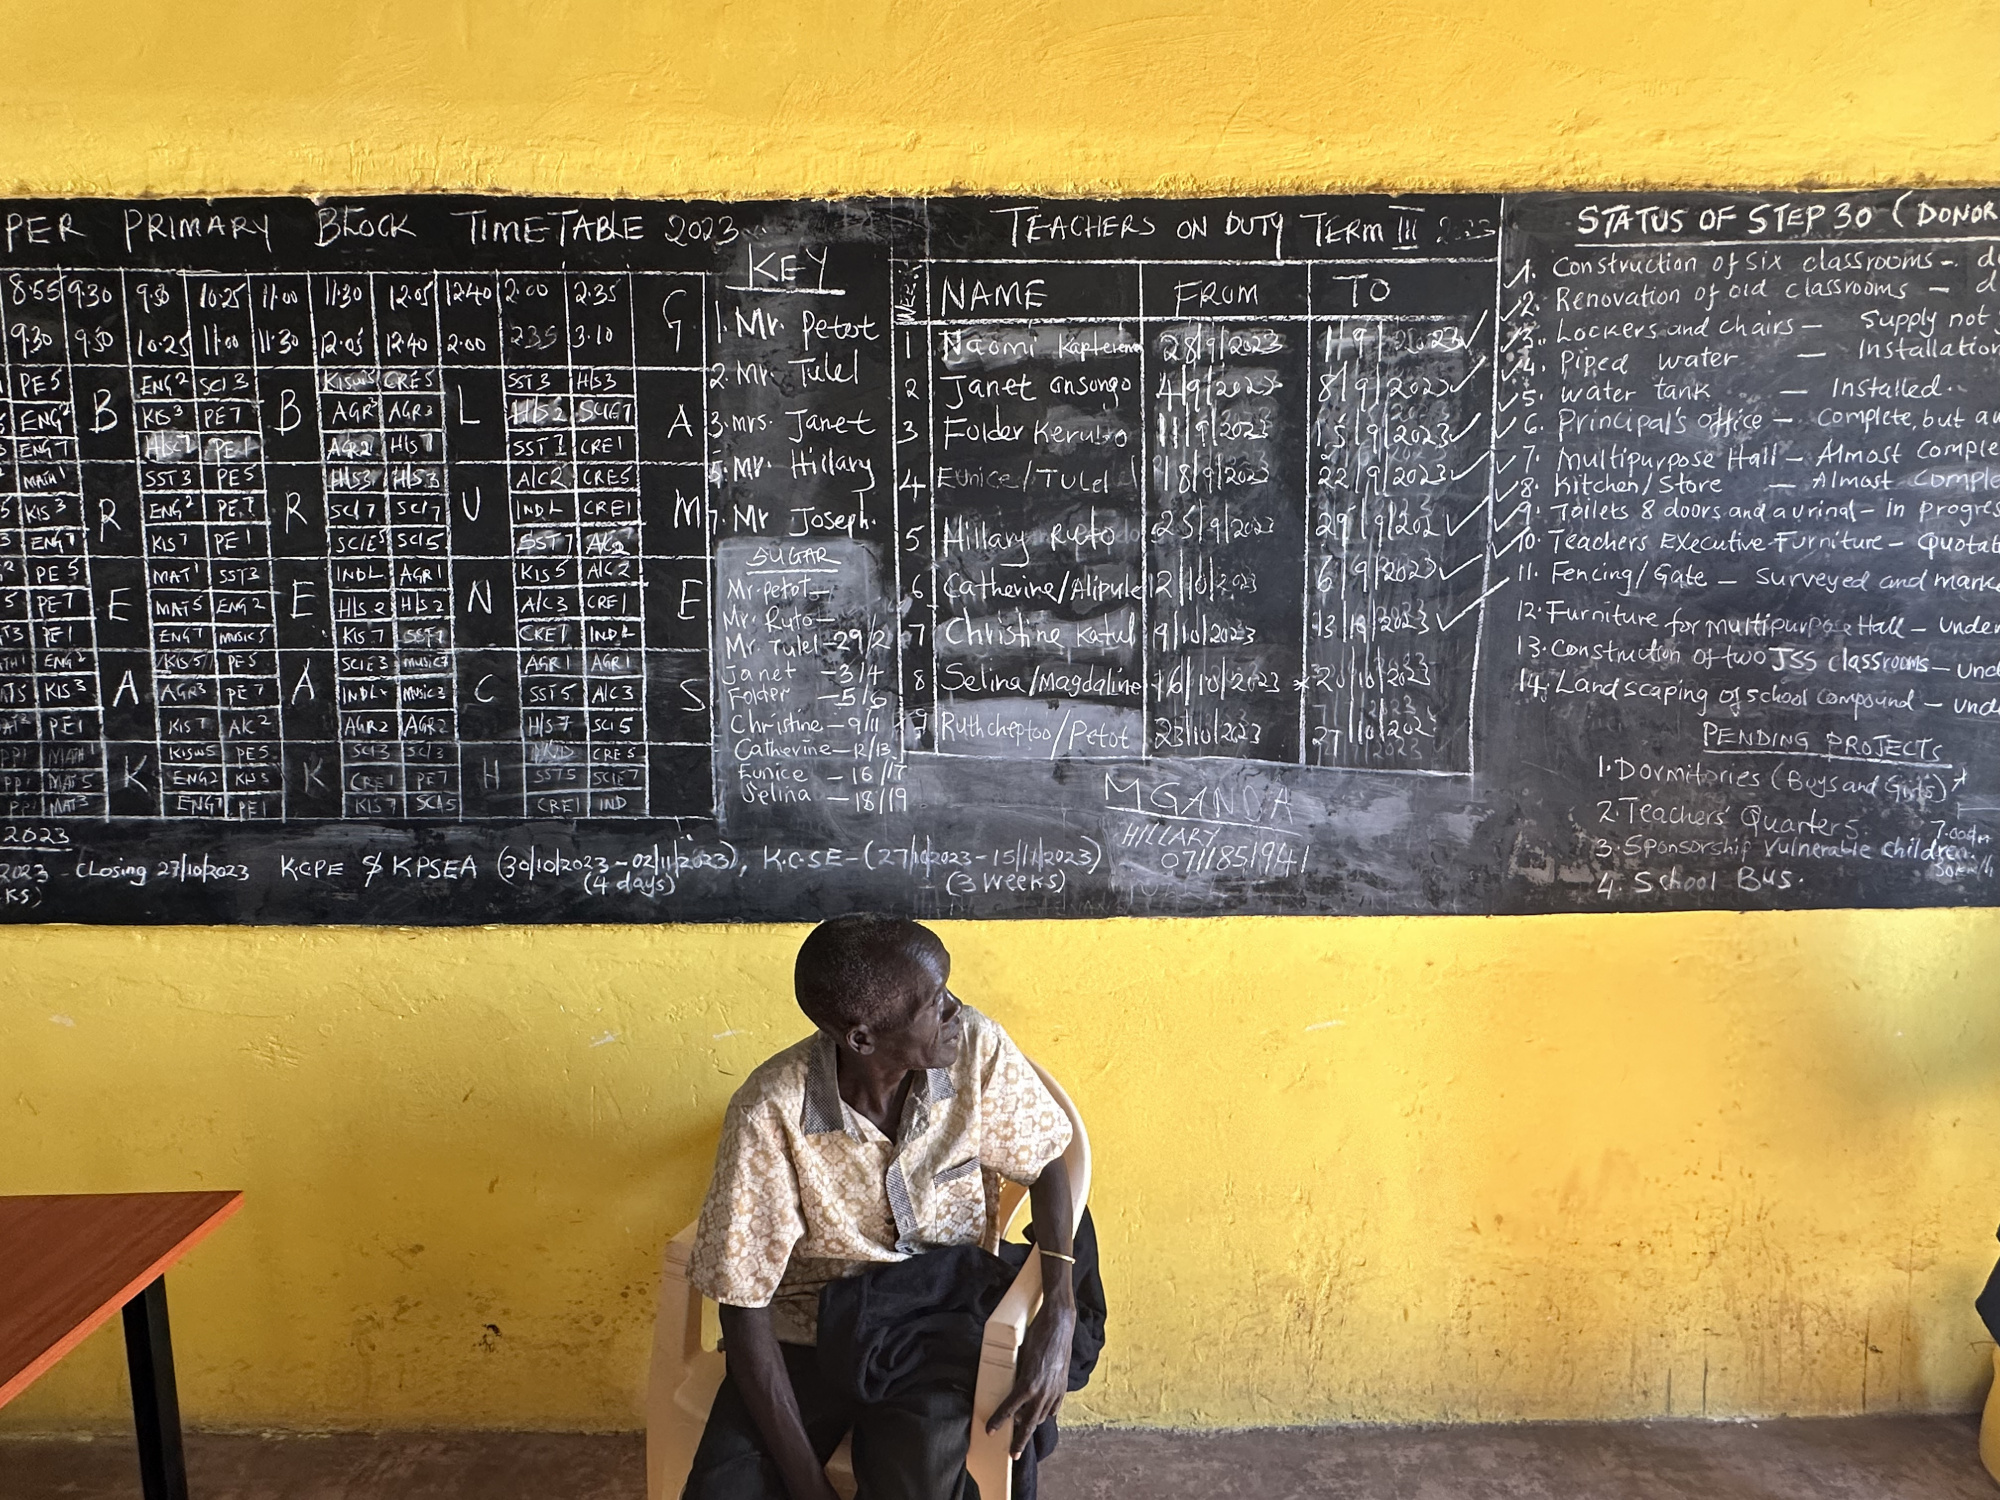 PER PRIMARY BLOCK TIMETABLE 2023
8:55 9:30 9:50 10:25 11:00 11:30 12:05 12:40 2:00 2:35 G
9:30 9:50 10:25 11:00 11:30 12:05 12:40 2:00 2:35 3:10
PE5 ENG2 SCI3 KISW5 CRE5 SST3 H/S3
ENG2 B KIS3 PE7 B AGR3 AGR3 L H/S2 SCIE7 A
ENG7 PE1 AGR2 H/S7 SST7 CRE1
MATH1 SST3 PE5 H/S3 H/S3 A/C2 CRE5
KIS3 R ENG2 PE7 R SCI7 SCI7 U IND1 CRE1 M
ENG7 KIS7 PE1 SCIE5 SCI5 SST7 A/C2
PE5 MAT1 SST3 IND1 AGR1 KIS5 A/C2
PE7 E MAT5 ENG2 E H/S2 H/S2 N A/C3 CRE1 E
PE1 ENG7 MUSIC5 KIS7 SST7 CRE7 IND1
ENG2 KIS5 PE5 SCIE3 MUSIC7 AGR1 AGR1
KIS3 A AGR3 PE7 A IND1 MUSIC3 C SST5 A/C3 S
PE1 KIS7 A/C2 AGR2 AGR2 H/S7 SCI5
PP1 MATH1 KISW5 PE5 SCI3 SCI3 CRE5
PP1 MAT5 K ENG2 KIS3 K CRE1 PE7 H SST5 SCIE7
PP1 MAT3 ENG7 PE1 KIS7 SCI5 CRE1 IND
2023
2023 - Closing 27/10/2023 KCPE & KPSEA (30/10/2023 - 02/11/2023), K.C.S.E - (27/10/2023 - 15/11/2023)
KS) (4 days) (3 weeks)
KEY
1. Mr. Petot
2. Mr. Tulel
3. mrs. Janet
5. Mr. Hillary
7. Mr Joseph.
SUGAR
Mr. petot —
Mr. Ruto —
Mr. Tulel — 29/2
Janet — 3/4
Folder — 5/6
Christine — 9/11
Catherine — 12/13
Eunice — 16/17
Selina — 18/19
TEACHERS ON DUTY TERM III 2023
WEEK NAME FROM TO
1 Naomi 28/9/2023 1/9/2023
2 Janet ansongo 4/9/2023 8/9/2023
3 Folder Kerubo 11/9/2023 15/9/2023
4 Eunice/Tulel 18/9/2023 22/9/2023
5 Hillary Ruto 25/9/2023 29/9/202
6 Catherine/Alipule 2/10/2023 6/9/2023
7 Christine Katul 9/10/2023 13/10/2023
8 Selina/Magdaline 16/10/2023 20/10/2023
9 Ruthcheptoo/Petot 23/10/2023 27/10/202
MGANGA
HILLARY
0711851941
STATUS OF STEP 30 (DONOR
1. Construction of six classrooms - d
2. Renovation of old classrooms — d
3. Lockers and chairs — Supply not
4. Piped water — Installation
5. water tank — Installed.
6. Principal's office — Complete, but
7. Multipurpose Hall — Almost Comple
8. Kitchen/Store — Almost Comple
9. Toilets 8 doors and a urinal — In progres
10. Teachers Executive Furniture — Quotat
11. Fencing/Gate — Surveyed and marke
12. Furniture for Multipurpose Hall — Under
13. Construction of two JSS classrooms — Und
14. Landscaping of school compound — Und
PENDING PROJECTS
1. Dormitories (Boys and Girls)
2. Teachers' Quarters.
3. Sponsorship Vulnerable Children.
4. School Bus.